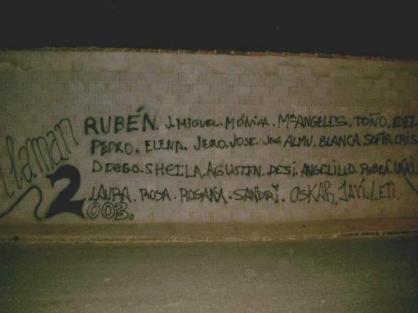 llaman
2
003.
RUBÉN. J. MIGUEL. MÓNICA. Mª ANGELES. TOÑO.
PEDRO. ELENA. JERO. JOSE. ALMU. BLANCA. SOFIA. CRIS
DIEGO. SHEILA. AGUSTIN. DESI. ANGELILLO.
LAURA. ROSA. ROSANA. SANDRI. OSKAR. JAVI. LETI.